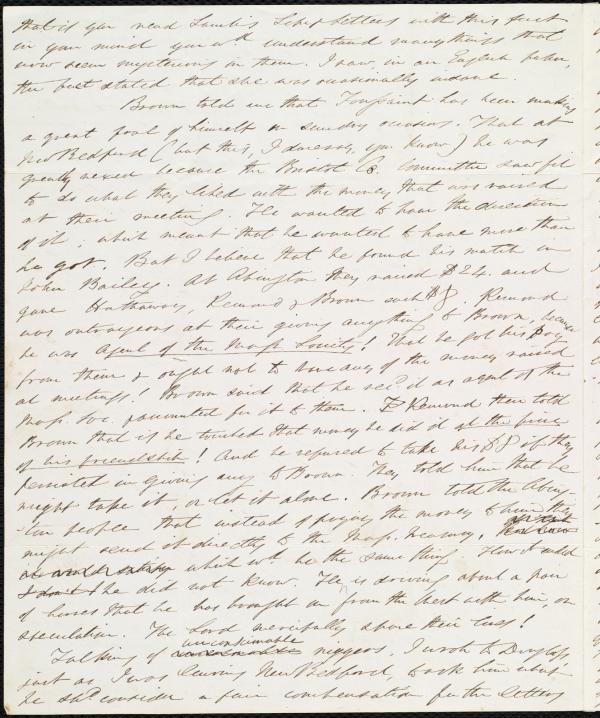 that if you read Lamb's Letters with this fact
in your mind you wd. understand many things that
now seem mysterious in them. I saw, in an English paper,
the fact stated that she was occasionally insane.
Brown told me that Toussaint has been making
a great fool of himself on sundry occasions. That at
New Bedford (but this, I daresay, you know) he was
greatly vexed because the Bristol Co. Committee saw fit
to do what they liked with the money that was raised
at their meeting. He wanted to have the direction
of it; which meant that he wanted to have more than
he got. But I believe that he found his match in
John Bailey. At Abington they raised $24. and
gave Hathaway, Remond & Brown each $8. Remond
was outrageous at their giving anything to Brown, because
he was Agent of the Mass. Society! That he got his pay
from them & ought not to have any of the money raised
at meetings! Brown said that he rec'd it as agent of the
Mass. Soc. & accounted for it to them. Remond then told
Brown that if he touched that money he did it at the price
of his friendship! And he refused to take his $8 if they
persisted in giving any to Brown. They told him that he
might take it, or let it alone. Brown told the Abing-
ton people that instead of paying the money to him they
might send it directly to the Mass. Treasury,
which wd. be the same thing. How it ended
he did not know. He is driving about a pair
of horses that he has brought on from the West with him, on
speculation. The Lord mercifully spare their lives!
Talking of unconscionable niggers, I wrote to Douglass
just as I was leaving New Bedford, to ask him what
he shd. consider a fair compensation for the letters